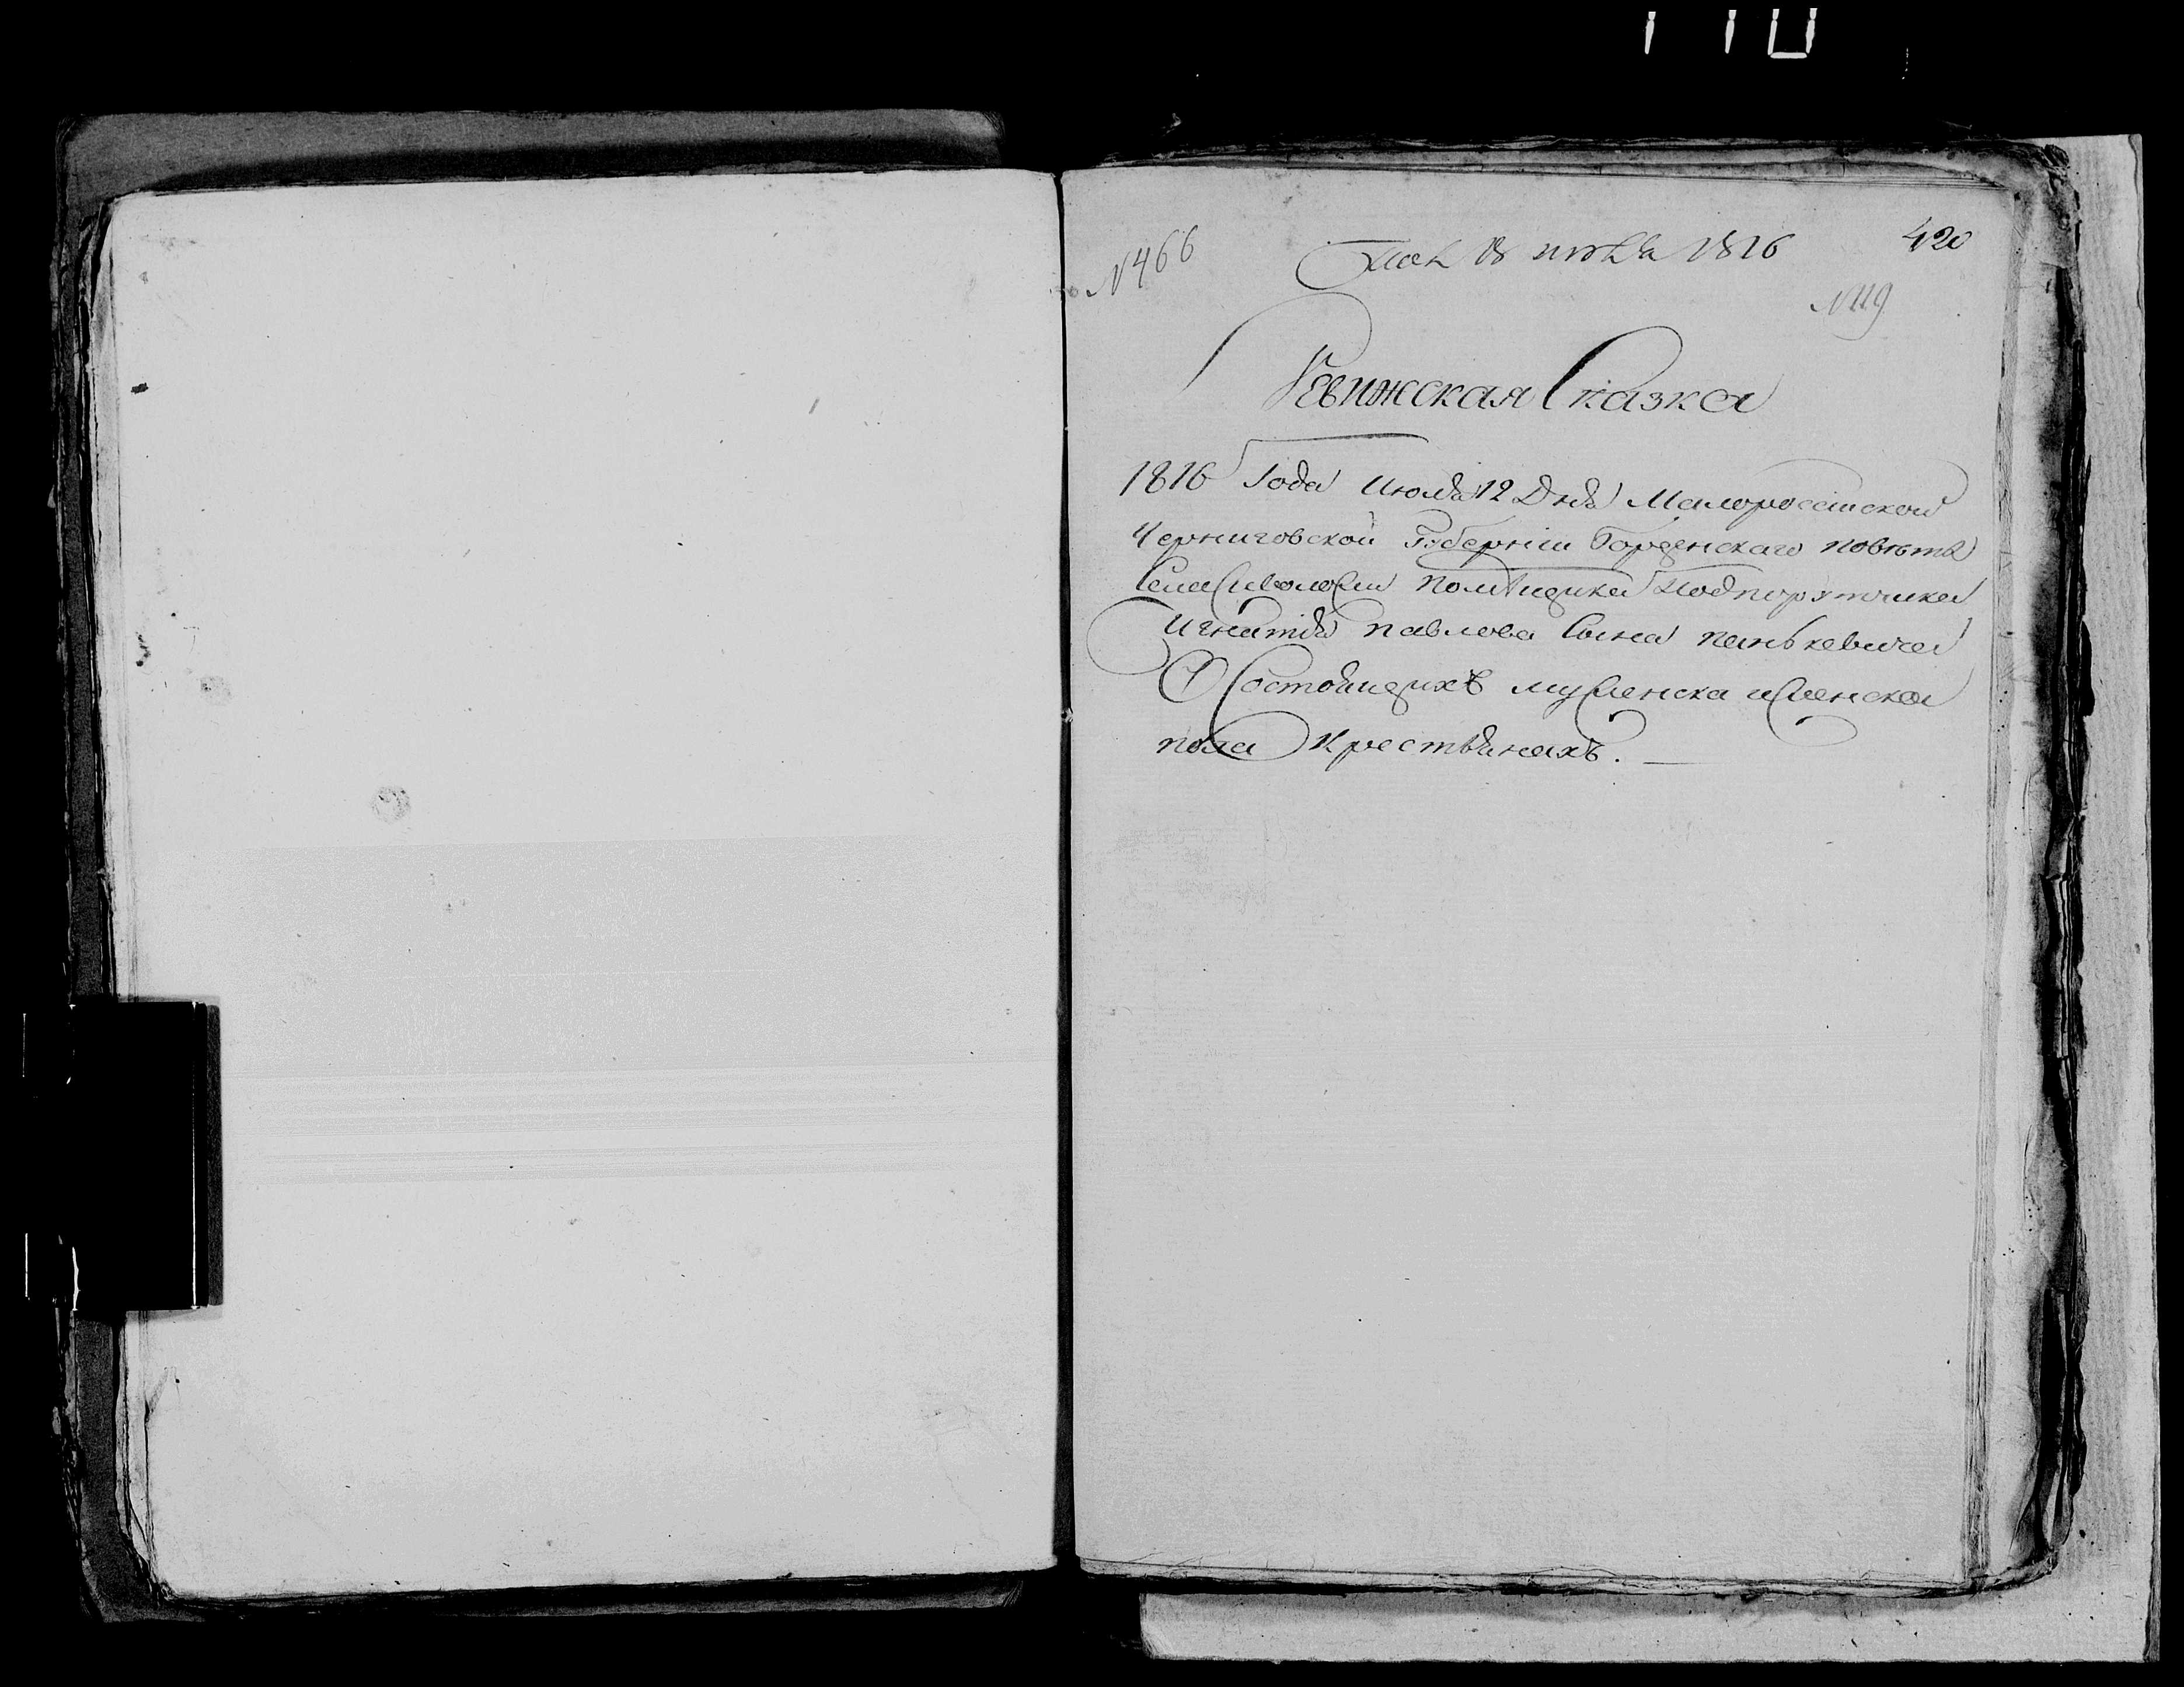 N 466
18 июля 1816
420
N 119
Ревижская Сказка
1816 Года Июля 12 Дня Малоросейской
Черниговской Губернии Борзенского повета
Села помещика Подпорутчика
Игнатия павлова Сына паньковича
О Состоящихъ мужеска и женска
пола Крестьянахъ.